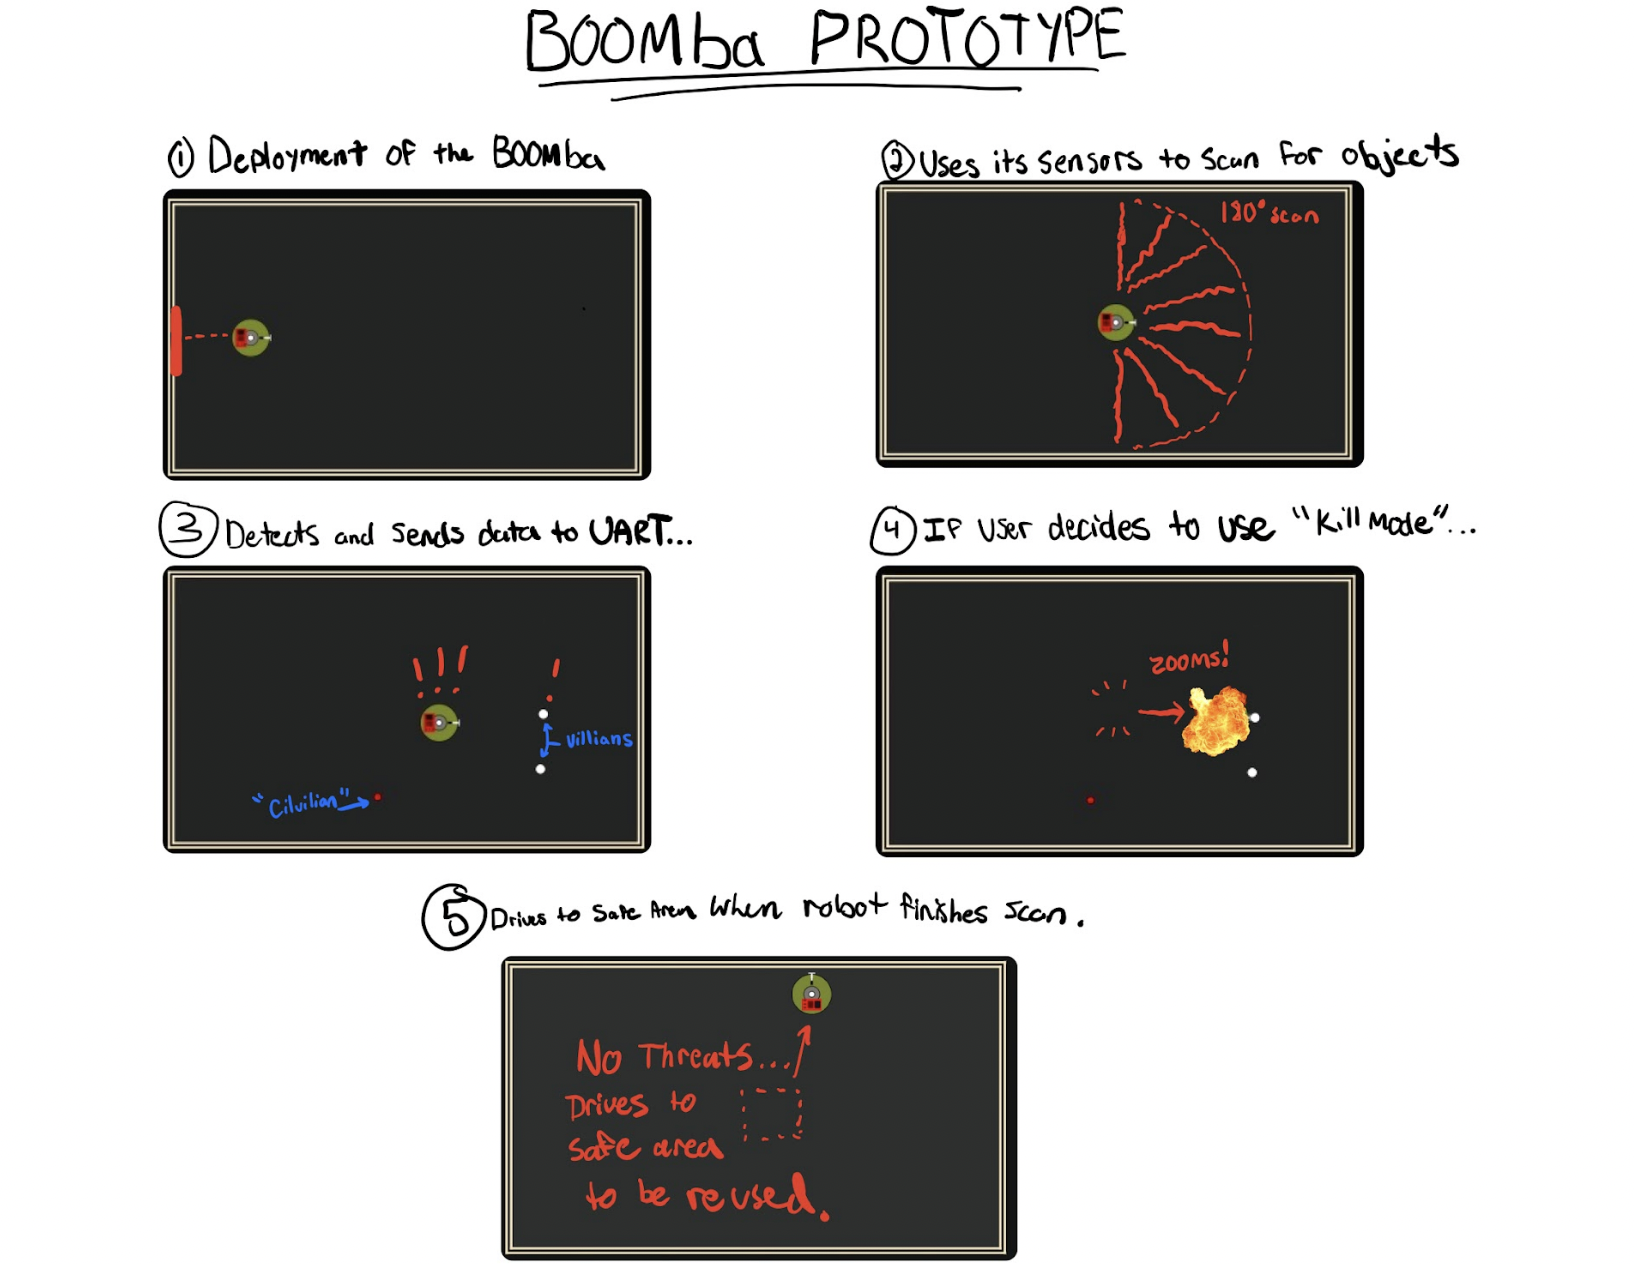 BOOMba PROTOTYPE
① Deployment of the BOOMba
② Uses its sensors to scan for objects
180° scan
③ Detects and sends data to UART...
! ! !
!
villians
"Cilvilian"
④ If user decides to use "Kill Mode"...
zooms!
⑤ Drives to Safe Area when robot finishes scan.
No Threats...
Drives to
safe area
to be reused.